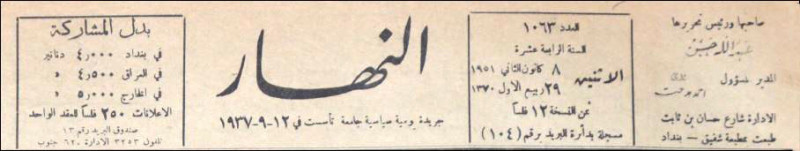 صاحبها ورئيس تحريرها
عبدالله حسن
المدير المسؤول
الادارة شارع حسان بن ثابت
طبعت بمطبعة شفيق - بغداد
العدد ١٠٦٣
السنة الرابعة عشرة
الاثنين
٨ كانون الثاني ١٩٥١
٢٩ ربيع الاول ١٣٧٠
ثمن النسخة ١٢ فلساً
مسجلة بدائرة البريد برقم (١٠٤)
النهار
جريدة يومية سياسية جامعة تأسست في ١٢-٩-١٩٣٧
بدل المشاركة
في بغداد ٤٫٠٠٠ دنانير
في العراق ٤٫٥٠٠ »
في الخارج ٥٫٠٠٠ »
الاعلانات ٢٥٠ فلساً للعقد الواحد
صندوق البريد رقم ١٣
تلفون ٣٢٥٣ الادارة ٦٢٠ جنوب